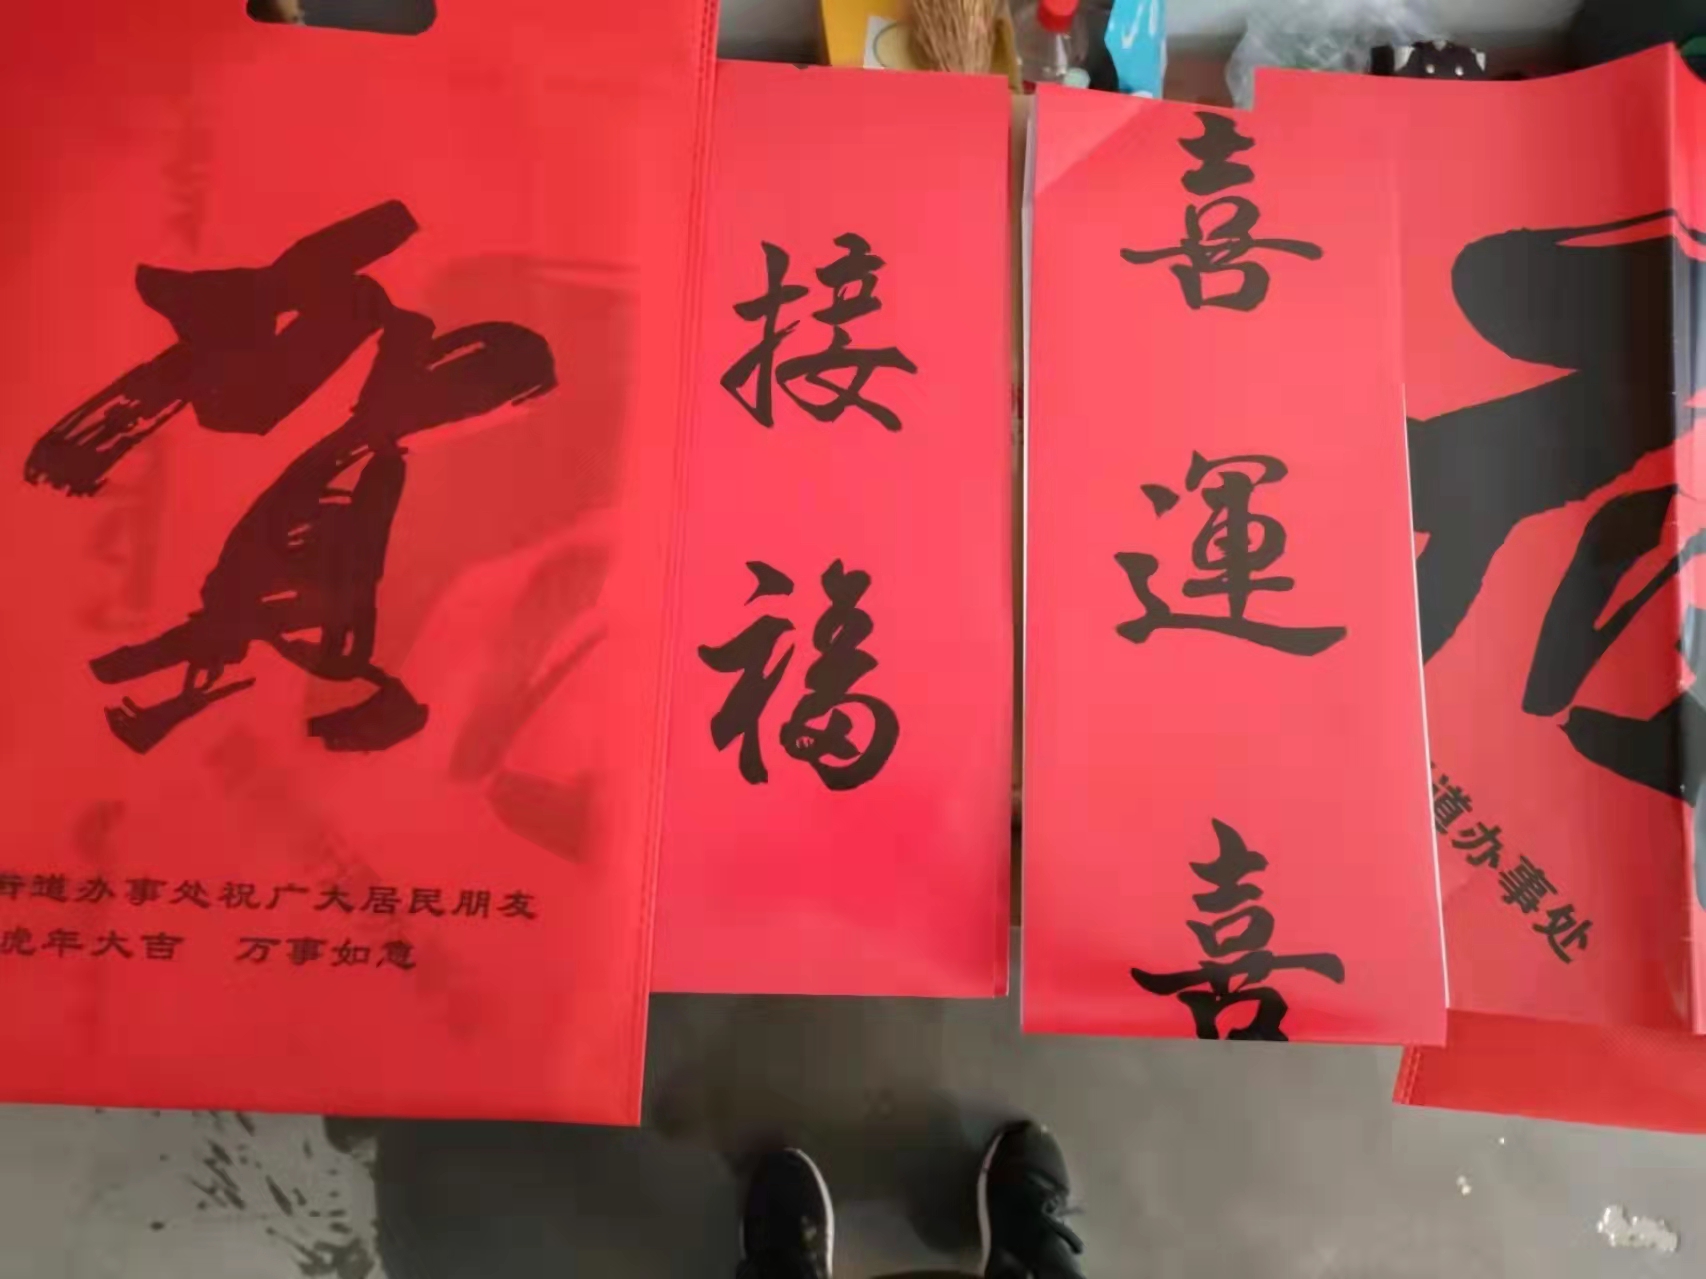 賀
街道办事处祝广大居民朋友
虎年大吉 万事如意
接福
喜運喜
道办事处